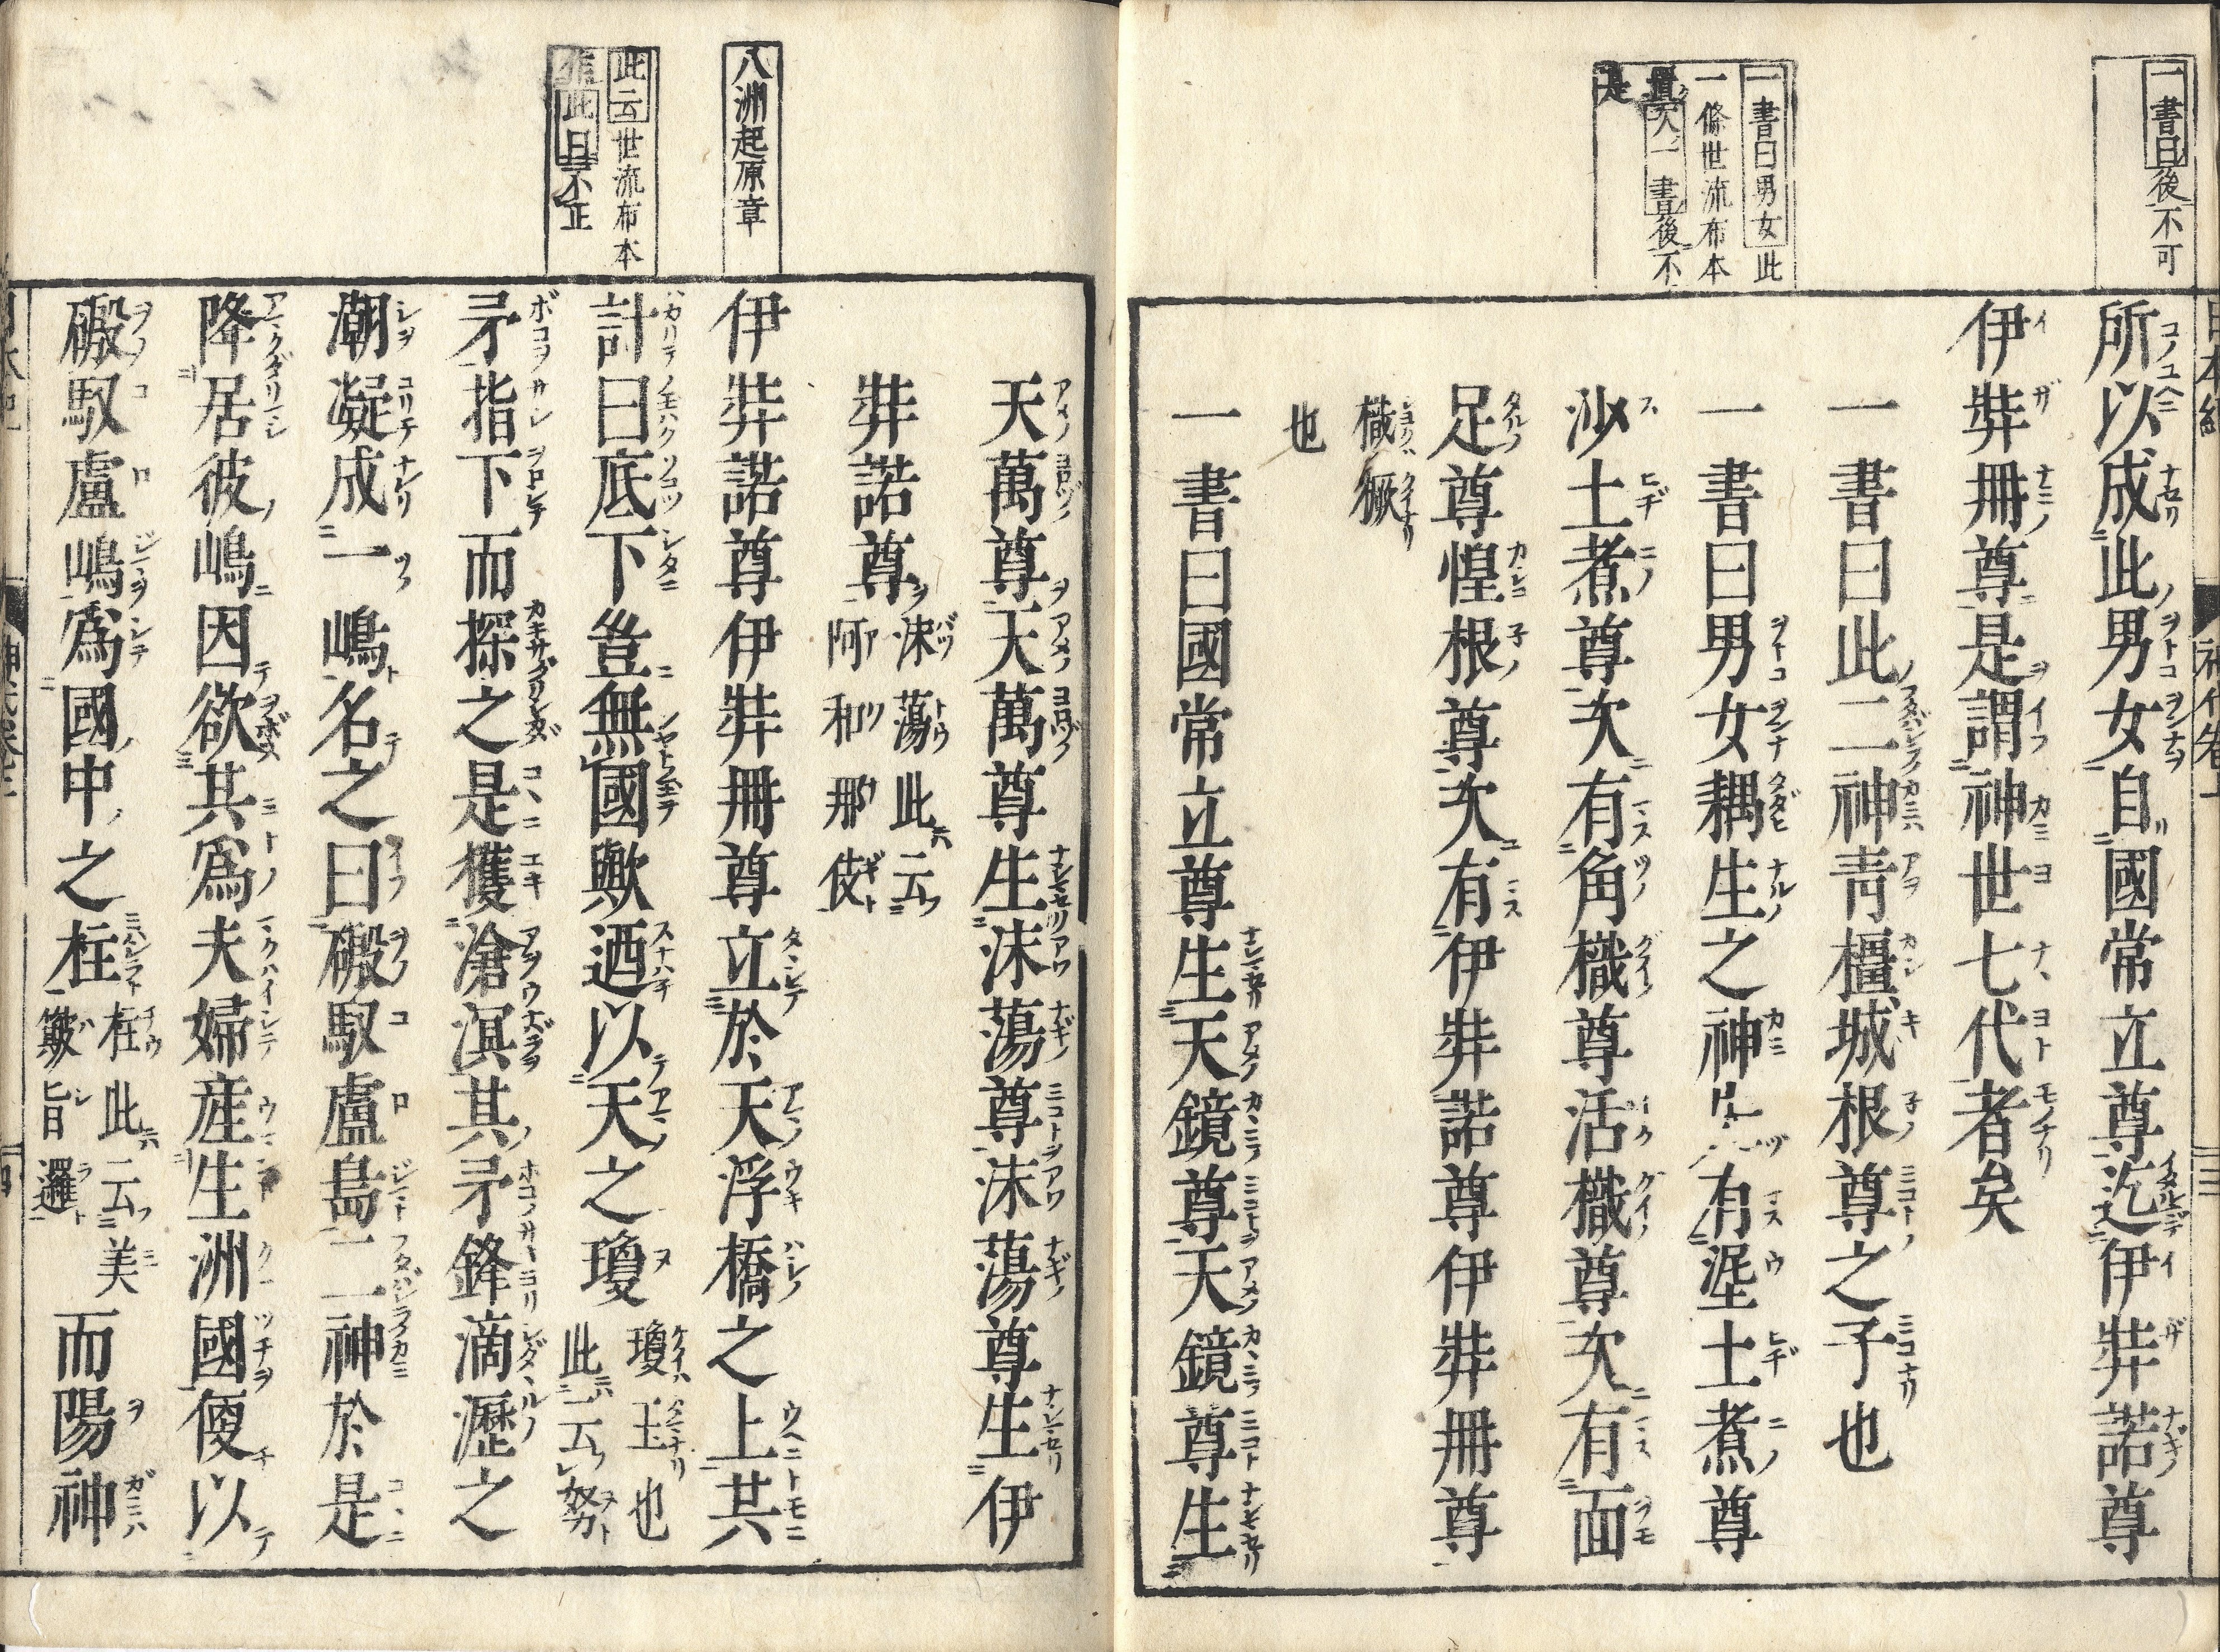 一書曰後不可
一書曰男女此
一條世流布本
次一書後不
是
所以成此男女自國常立尊迄伊弉諾尊
伊弉冊尊是謂神世七代者矣
一書曰此二神青橿城根尊之子也
一書曰男女耦生之神先有埿土煮尊
沙土煮尊次有角樴尊活樴尊次有面
足尊惶根尊次有伊弉諾尊伊弉冊尊
樴橛
也
一書曰國常立尊生天鏡尊天鏡尊生
八洲起原章
此云世流布本
此曰不正
天萬尊天萬尊生沫蕩尊沫蕩尊生伊
弉諾尊沫蕩此云
阿和那伎
伊弉諾尊伊弉冊尊立於天浮橋之上共
計曰底下豈無國歟迺以天之瓊瓊玉也
此云努
矛指下而探之是獲滄溟其矛鋒滴瀝之
潮凝成一嶋名之曰磤馭盧島二神於是
降居彼嶋因欲共爲夫婦産生洲國便以
磤馭盧嶋爲國中之柱柱此云美
簸旨邏
而陽神